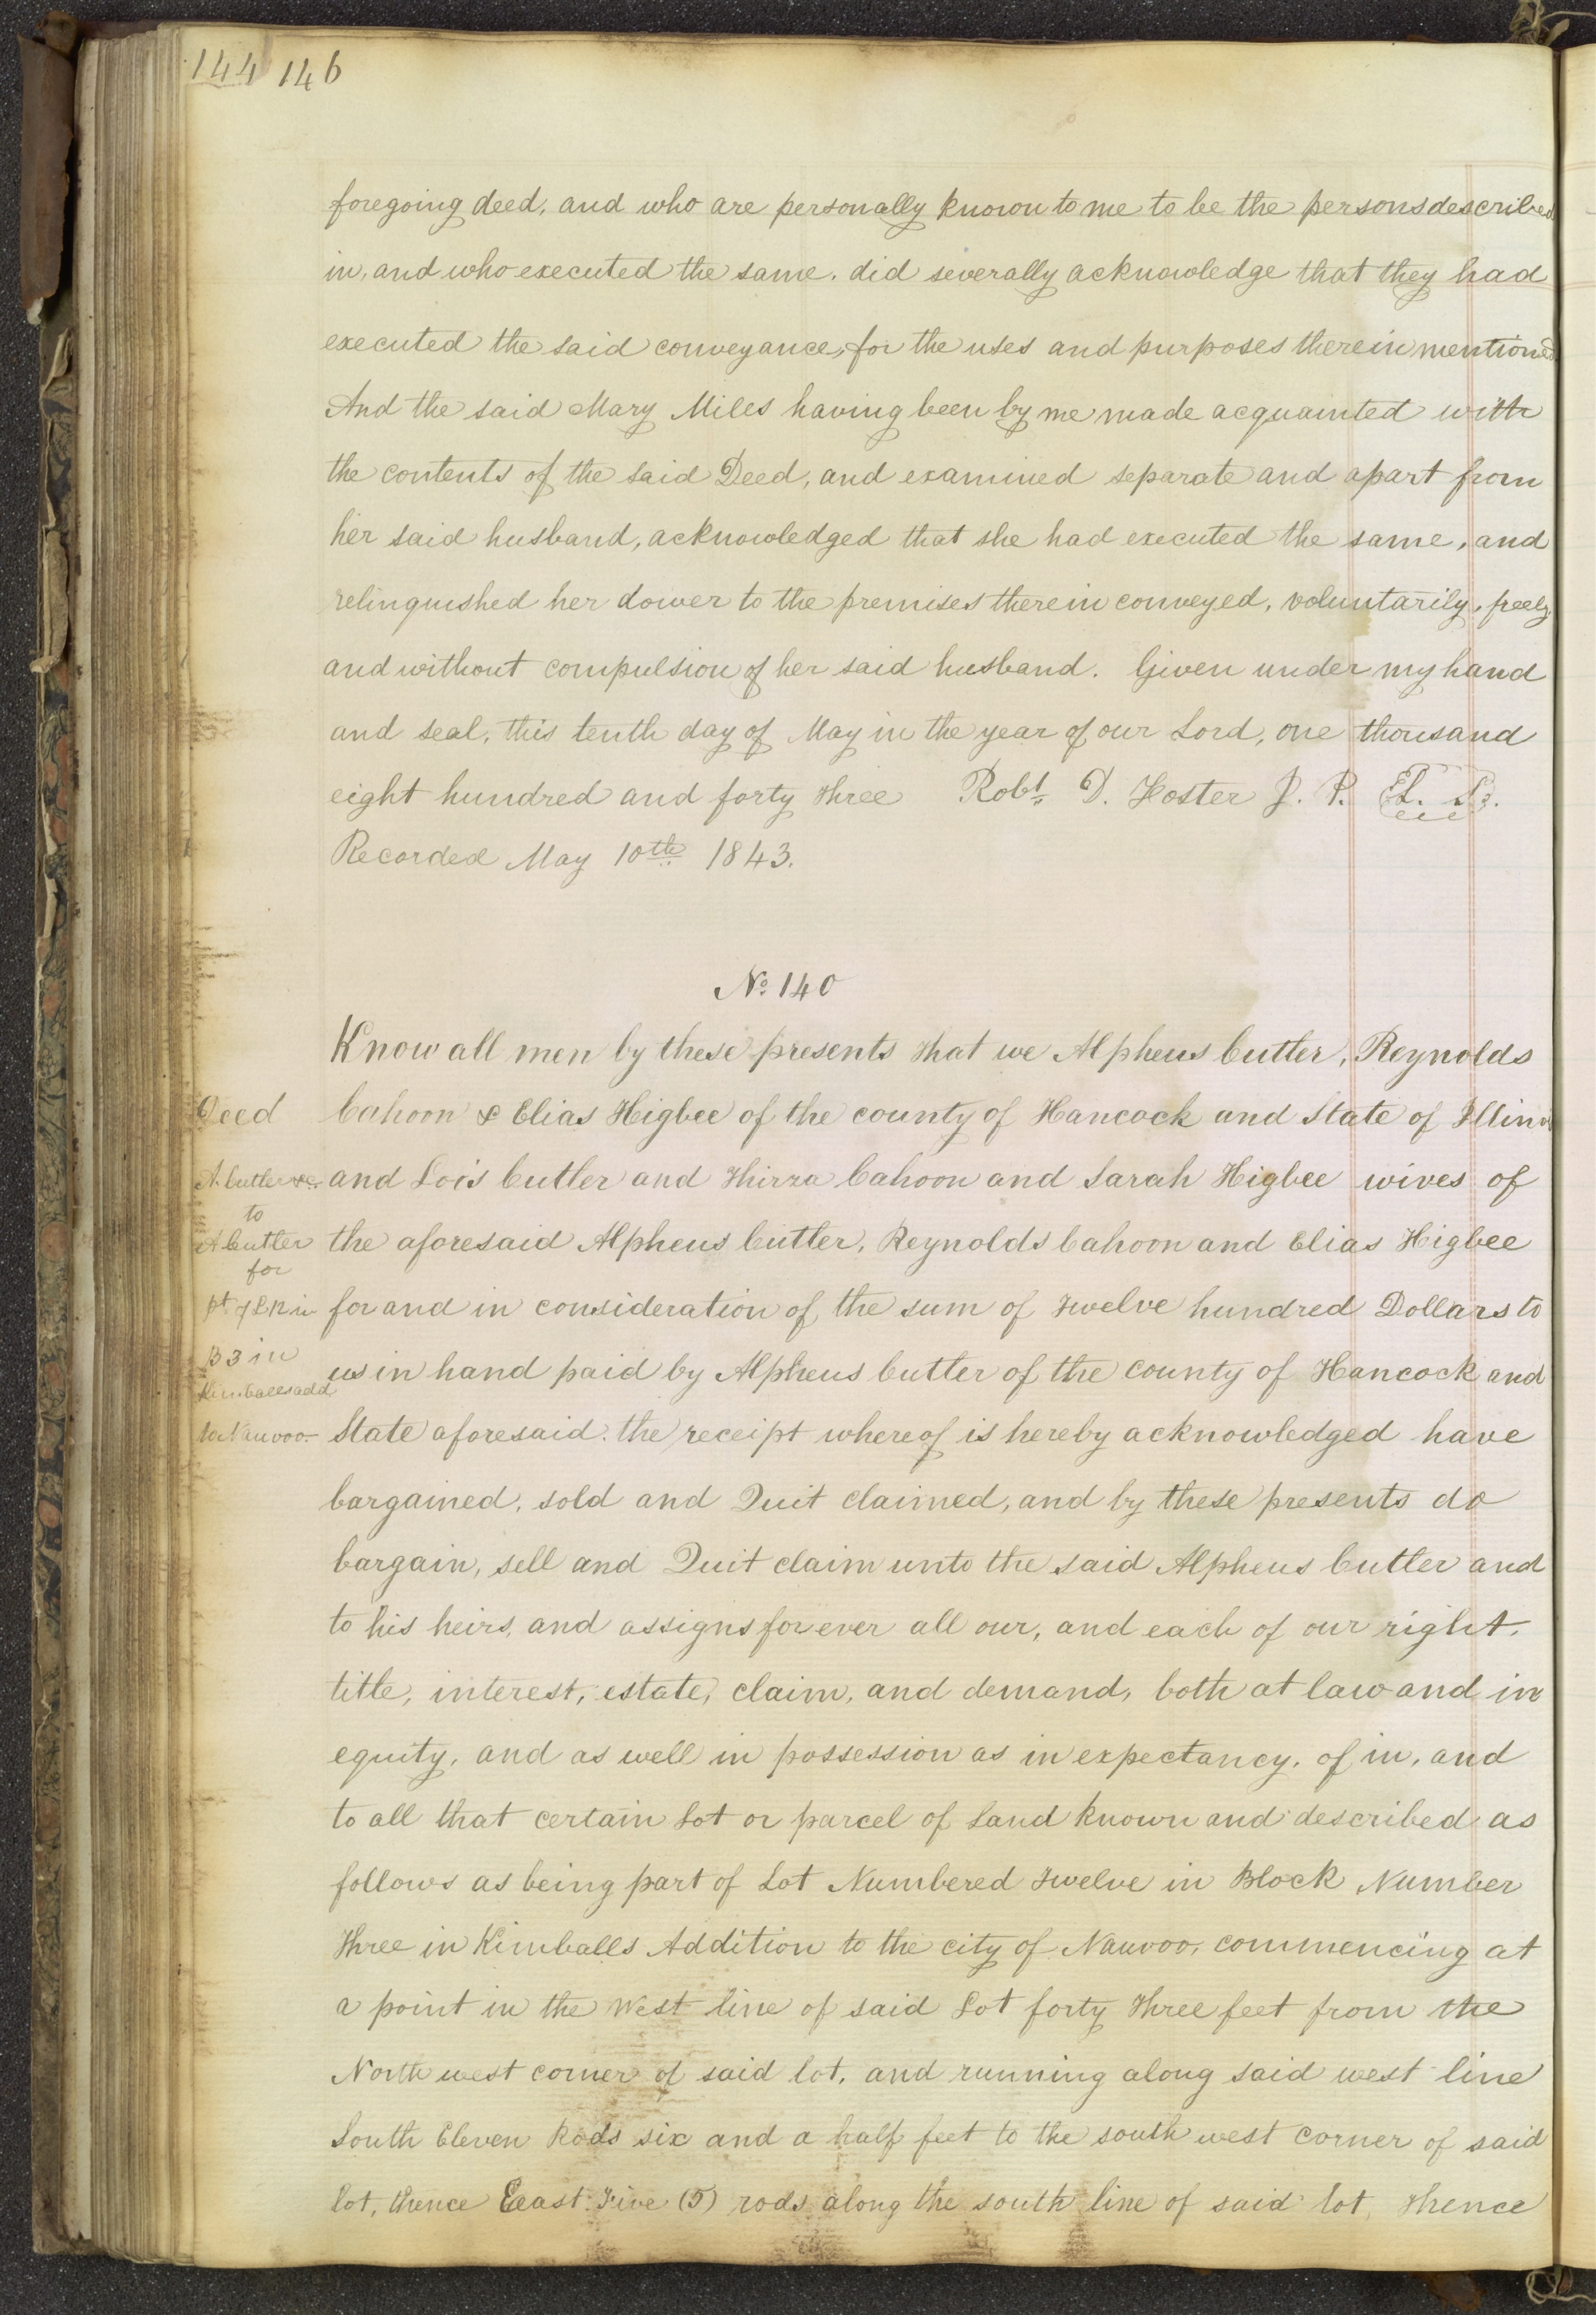 144 146
foregoing deed, and who are personally known to me to be the persons described
in, and who executed the same. did severally acknowledge that they had
executed the said conveyance, for the uses and purposes therein mentioned
And the said Mary Miles having been by me made acquainted with
the contents of the said Deed, and examined separate and apart from
her said husband, acknowledged that she had executed the same, and
relinquished her dower to the premises therein conveyed, voluntarily, freely,
and without compulsion of her said husband. Given under my hand
and seal, this tenth day of May in the year of our Lord, one thousand
eight hundred and forty three Robt. D. Foster J. P. L. S.
Recorded May 10th 1843.
No. 140
Know all men by these presents that we Alpheus Cutler, Reynolds
Deed
Cahoon & Elias Higbee of the county of Hancock and State of Illinois
A. Cutler &c.
and Lois Cutler and Thirza Cahoon and Sarah Higbee wives of
to
A Cutler
the aforesaid Alpheus Cutler, Reynolds Cahoon and Elias Higbee
for
pt. of L 12 in
for and in consideration of the sum of Twelve hundred Dollars to
B 3 in
us in hand paid by Alpheus Cutler of the county of Hancock and
Kimballs add
to Nauvoo.
State aforesaid. the receipt whereof is hereby acknowledged have
bargained, sold and Quit claimed, and by these presents do
bargain, sell and Quit claim unto the said Alpheus Cutler and
to his heirs, and assigns forever all our, and each of our right,
title, interest, estate, claim, and demand, both at law and in
equity, and as well in possession as in expectancy, of in, and
to all that certain Lot or parcel of Land known and described as
follows as being part of Lot Numbered Twelve in Block Number
Three in Kimballs Addition to the city of Nauvoo, commencing at
a point in the West line of said Lot forty three feet from the
North west corner of said lot, and running along said west line
South Eleven Rods six and a half feet to the south west corner of said
lot, thence Eeast Five (5) rods along the south line of said lot, Thence